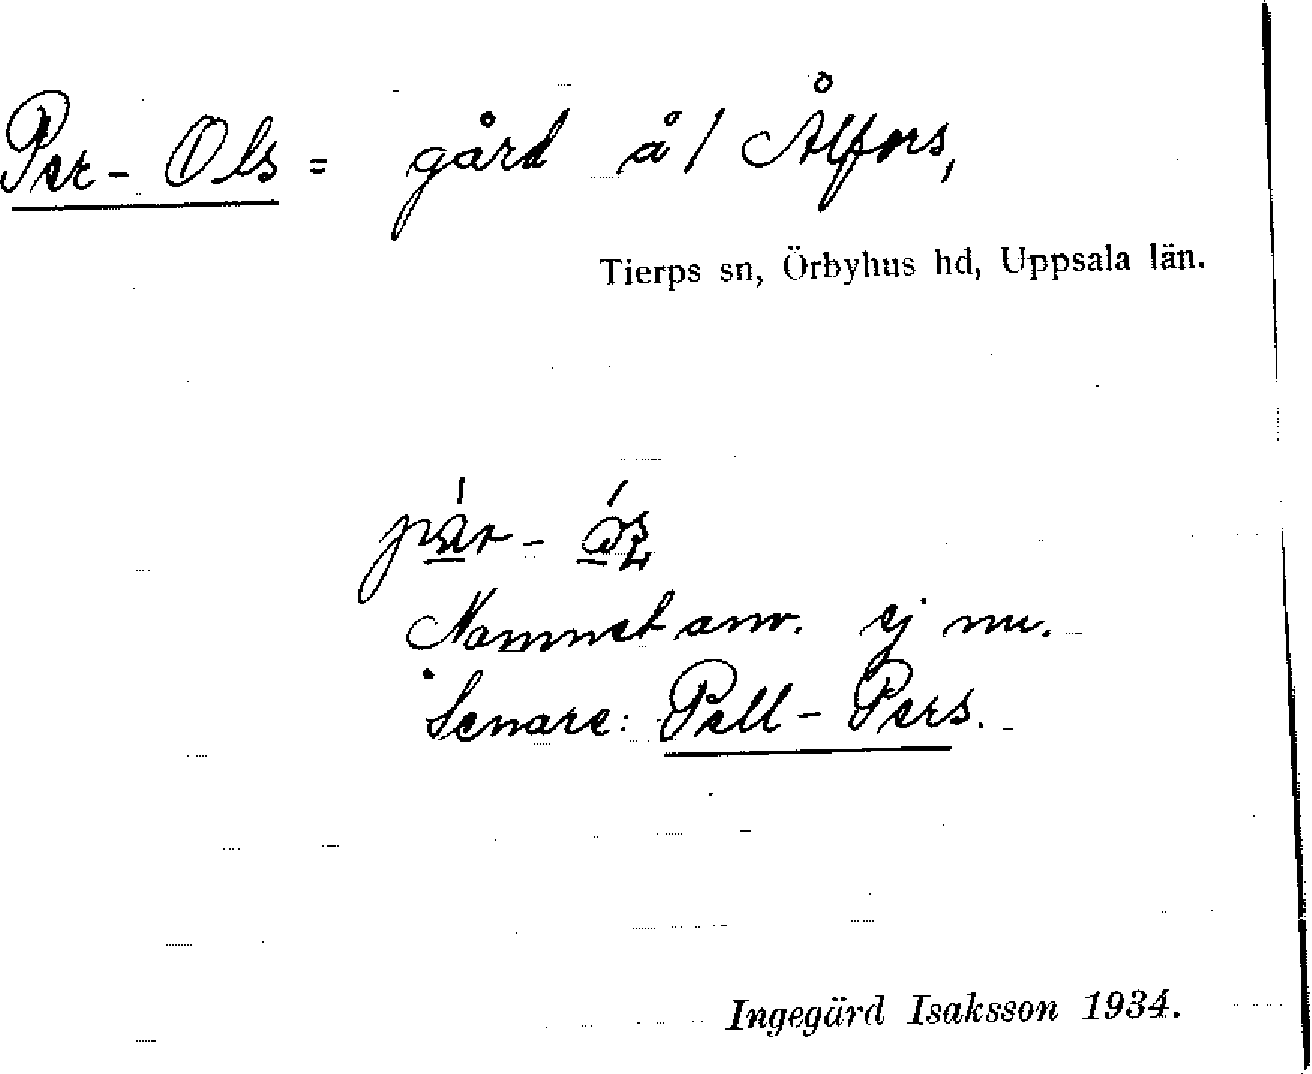 Per-Ols = gård å / Ålfors,
Tierps sn, Örbyhus hd, Uppsala län.
Namnet anv. ej nu.
Senare: Pell-Pers.
Ingegärd Isaksson 1934.